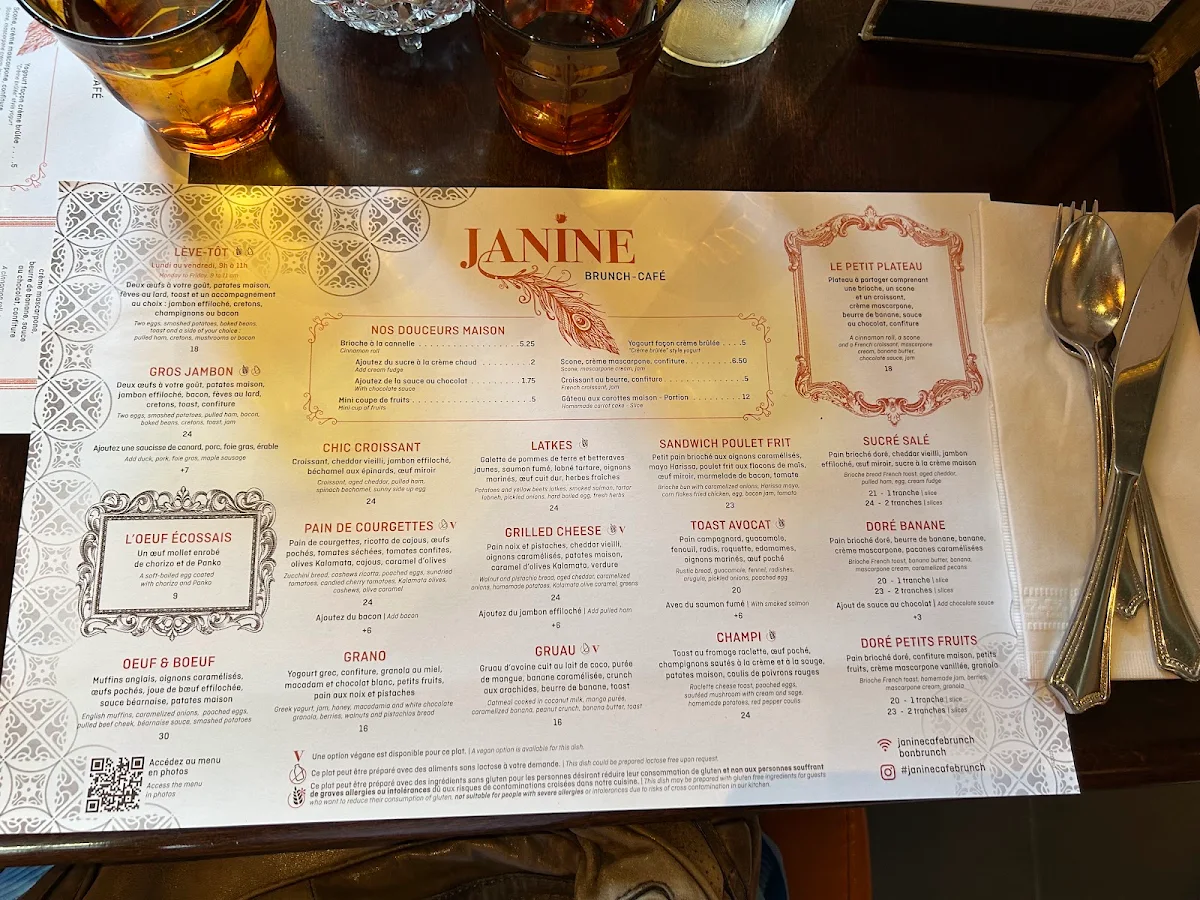 JANINE
BRUNCH-CAFÉ
LÈVE-TÔT
Lundi au vendredi, 9h à 11h
Monday to Friday, 9 to 11 am
Deux œufs à votre goût, patates maison,
fèves au lard, toast et un accompagnement
au choix : jambon effiloché, cretons,
champignons ou bacon
Two eggs, smashed potatoes, baked beans,
toast and a side of your choice :
pulled ham, cretons, mushrooms or bacon
18
GROS JAMBON
Deux œufs à votre goût, patates maison,
jambon effiloché, bacon, fèves au lard,
cretons, toast, confiture
Two eggs, smashed potatoes, pulled ham, bacon,
baked beans, cretons, toast, jam
24
Ajoutez une saucisse de canard, porc, foie gras, érable
Add duck, pork, foie gras, maple sausage
+7
L'OEUF ÉCOSSAIS
Un œuf mollet enrobé
de chorizo et de Panko
A soft-boiled egg coated
with chorizo and Panko
9
OEUF & BOEUF
Muffins anglais, oignons caramélisés,
œufs pochés, joue de bœuf effilochée,
sauce béarnaise, patates maison
English muffins, caramelized onions, poached eggs,
pulled beef cheek, béarnaise sauce, smashed potatoes
30
NOS DOUCEURS MAISON
Brioche à la cannelle . . . . . . . . . . . . . . . 5.25
Cinnamon roll
Ajoutez du sucre à la crème chaud . . . . . . 2
Add cream fudge
Ajoutez de la sauce au chocolat . . . . . . . 1.75
With chocolate sauce
Mini coupe de fruits . . . . . . . . . . . . . . . 5
Mini cup of fruits
Yogourt façon crème brûlée . . . .5
"Crème brûlée" style yogurt
Scone, crème mascarpone, confiture. . . . . . . .6.50
Scone, mascarpone cream, jam
Croissant au beurre, confiture . . . . . . . . . . .5
French croissant, jam
Gâteau aux carottes maison - Portion . . . . . . 12
Homemade carrot cake - Slice
LE PETIT PLATEAU
Plateau à partager comprenant
une brioche, un scone
et un croissant,
crème mascarpone,
beurre de banane, sauce
au chocolat, confiture
A cinnamon roll, a scone
and a French croissant, mascarpone
cream, banana butter,
chocolate sauce, jam
18
CHIC CROISSANT
Croissant, cheddar vieilli, jambon effiloché,
béchamel aux épinards, œuf miroir
Croissant, aged cheddar, pulled ham,
spinach bechamel, sunny side up egg
24
LATKES
Galette de pommes de terre et betteraves
jaunes, saumon fumé, labné tartare, oignons
marinés, œuf cuit dur, herbes fraîches
Potatoes and yellow beets latkes, smoked salmon, tartar
labneh, pickled onions, hard boiled egg, fresh herbs
24
SANDWICH POULET FRIT
Petit pain brioché aux oignons caramélisés,
mayo Harissa, poulet frit aux flocons de maïs,
œuf miroir, marmelade de bacon, tomate
Brioche bun with caramelized onions, Harissa mayo,
corn flakes fried chicken, egg, bacon jam, tomato
23
SUCRÉ SALÉ
Pain brioché doré, cheddar vieilli, jambon
effiloché, œuf miroir, sucre à la crème maison
Brioche bread French toast, aged cheddar,
pulled ham, egg, cream fudge
21 - 1 tranche | slice
24 - 2 tranches | slices
PAIN DE COURGETTES V
Pain de courgettes, ricotta de cajous, œufs
pochés, tomates séchées, tomates confites,
olives Kalamata, cajous, caramel d'olives
Zucchini bread, cashews ricotta, poached eggs, sundried
tomatoes, candied cherry tomatoes, Kalamata olives,
cashews, olive caramel
24
Ajoutez du bacon | Add bacon
+6
GRILLED CHEESE V
Pain noix et pistaches, cheddar vieilli,
oignons caramélisés, patates maison,
caramel d'olives Kalamata, verdure
Walnut and pistachio bread, aged cheddar, caramelized
onions, homemade potatoes, Kalamata olive caramel, greens
24
Ajoutez du jambon effiloché | Add pulled ham
+6
TOAST AVOCAT
Pain campagnard, guacamole,
fenouil, radis, roquette, edamames,
oignons marinés, œuf poché
Rustic bread, guacamole, fennel, radishes,
arugula, pickled onions, poached egg
20
Avec du saumon fumé | With smoked salmon
+6
DORÉ BANANE
Pain brioché doré, beurre de banane, banane,
crème mascarpone, pacanes caramélisées
Brioche French toast, banana butter, banana,
mascarpone cream, caramelized pecans
20 - 1 tranche | slice
23 - 2 tranches | slices
Ajout de sauce au chocolat | Add chocolate sauce
+3
GRANO
Yogourt grec, confiture, granola au miel,
macadam et chocolat blanc, petits fruits,
pain aux noix et pistaches
Greek yogurt, jam, honey, macadamia and white chocolate
granola, berries, walnuts and pistachios bread
16
GRUAU V
Gruau d'avoine cuit au lait de coco, purée
de mangue, banane caramélisée, crunch
aux arachides, beurre de banane, toast
Oatmeal cooked in coconut milk, mango purée,
caramelized banana, peanut crunch, banana butter, toast
16
CHAMPI
Toast au fromage raclette, œuf poché,
champignons sautés à la crème et à la sauge,
patates maison, coulis de poivrons rouges
Raclette cheese toast, poached eggs,
sautéed mushroom with cream and sage,
homemade potatoes, red pepper coulis
24
DORÉ PETITS FRUITS
Pain brioché doré, confiture maison, petits
fruits, crème mascarpone vanillée, granola
Brioche French toast, homemade jam, berries,
mascarpone cream, granola
20 - 1 tranche | slice
23 - 2 tranches | slices
Accédez au menu
en photos
Access the menu
in photos
V Une option végane est disponible pour ce plat. | A vegan option is available for this dish.
Ce plat peut être préparé avec des aliments sans lactose à votre demande. | This dish could be prepared lactose free upon request.
Ce plat peut être préparé avec des ingrédients sans gluten pour les personnes désirant réduire leur consommation de gluten et non aux personnes souffrant
de graves allergies ou intolérances dû aux risques de contaminations croisées dans notre cuisine. | This dish may be prepared with gluten free ingredients for guests
who want to reduce their consumption of gluten, not suitable for people with severe allergies or intolerances due to risks of cross contamination in our kitchen.
janinecafebrunch
bonbrunch
#janinecafebrunch
CAFÉ
Scone, crème mascarpone, confiture
Yogourt façon crème brûlée . . . . 5
"Crème brûlée" style yogurt
crème mascarpone,
beurre de banane, sauce
au chocolat, confiture